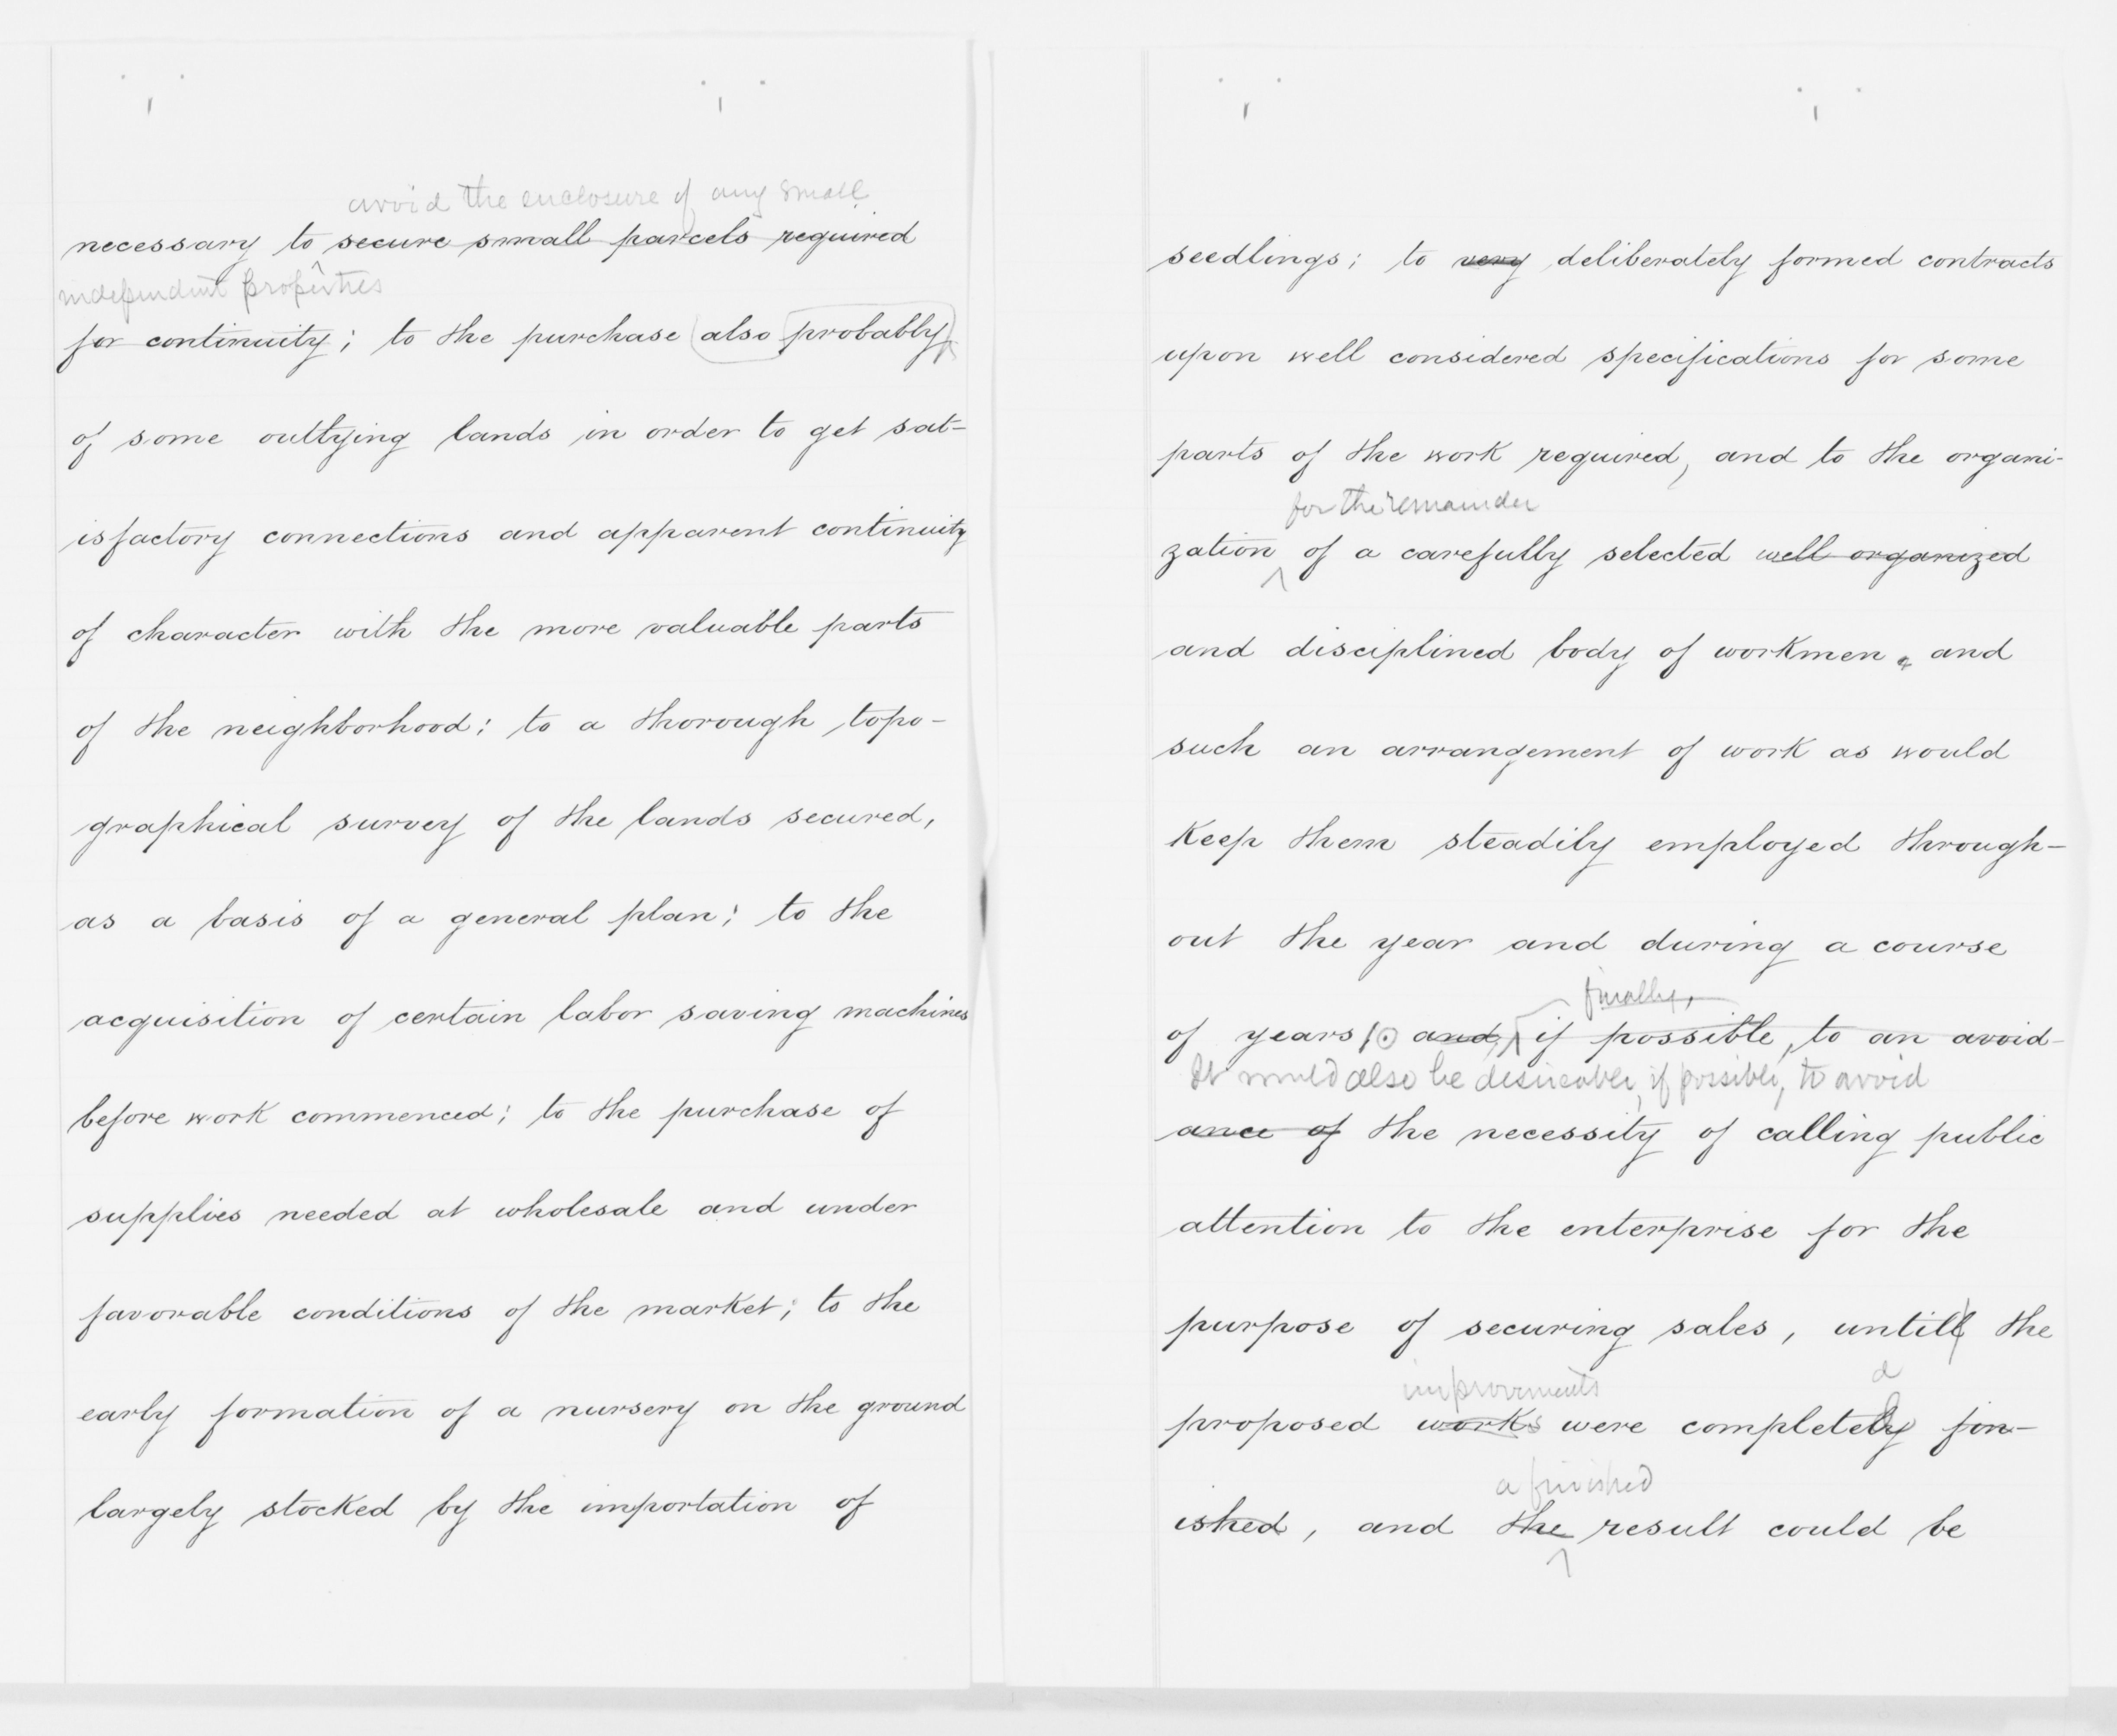 avoid the enclosure of any small
necessary to secure small parcels required
independent properties
for continuity; to the purchase (also probably)
of some outlying lands in order to get sat-
isfactory connections and apparent continuity
of character with the more valuable parts
of the neighborhood; to a thorough topo-
graphical survey of the lands secured,
as a basis of a general plan; to the
acquisition of certain labor saving machines
before work commenced; to the purchase of
supplies needed at wholesale and under
favorable conditions of the market; to the
early formation of a nursery on the ground
largely stocked by the importation of
seedlings; to very deliberately formed contracts
upon well considered specifications for some
parts of the work required, and to the organi-
for the remainder
zation of a carefully selected well organized
and disciplined body of workmen, and
such an arrangement of work as would
keep them steadily employed through-
out the year and during a course
finally,
of years. and, if possible, to an avoid-
It would also be desireable, if possible, to avoid
ance of the necessity of calling public
attention to the enterprise for the
purpose of securing sales, untill the
improvements d
proposed works were completely fin-
a finished
ished, and the result could be